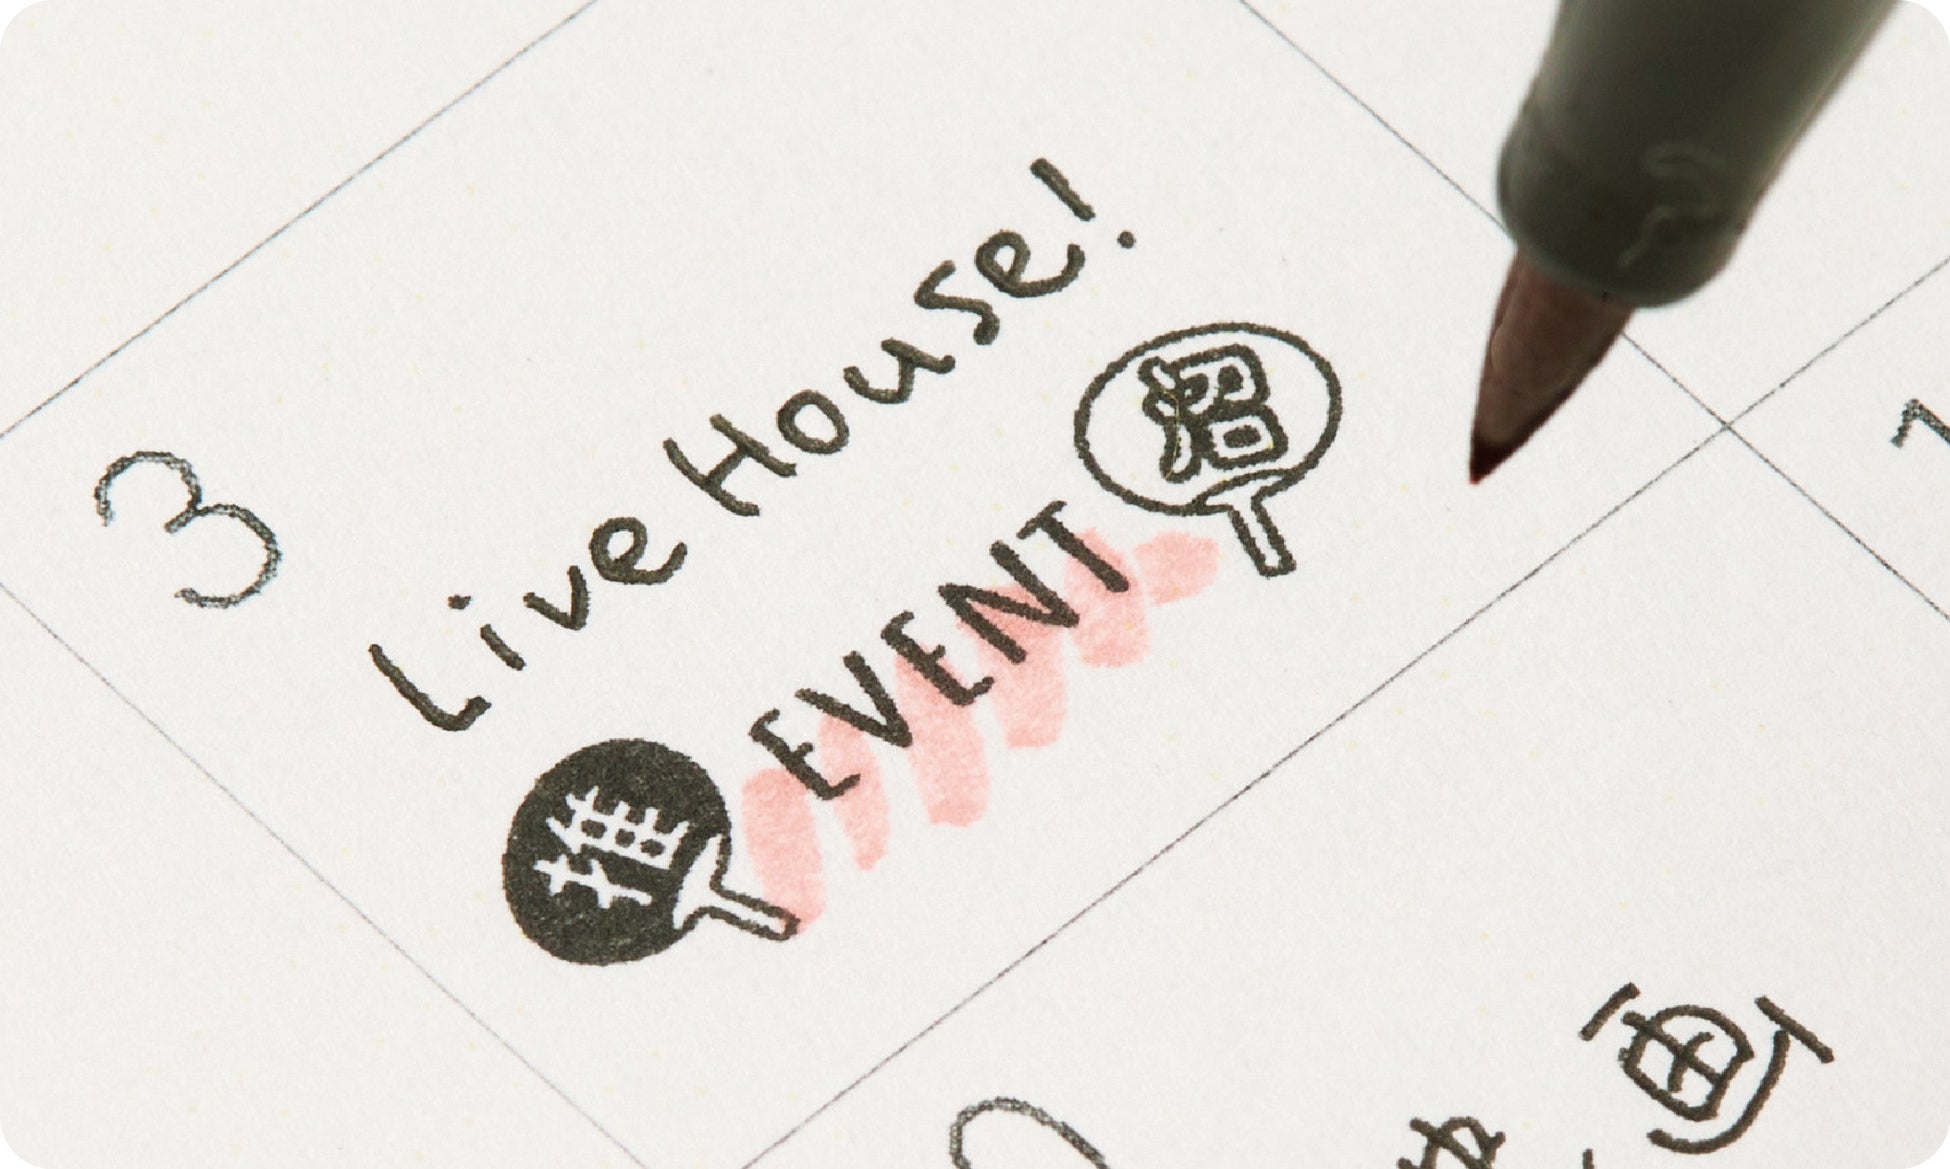 3
Live House!
推
EVENT
招
画